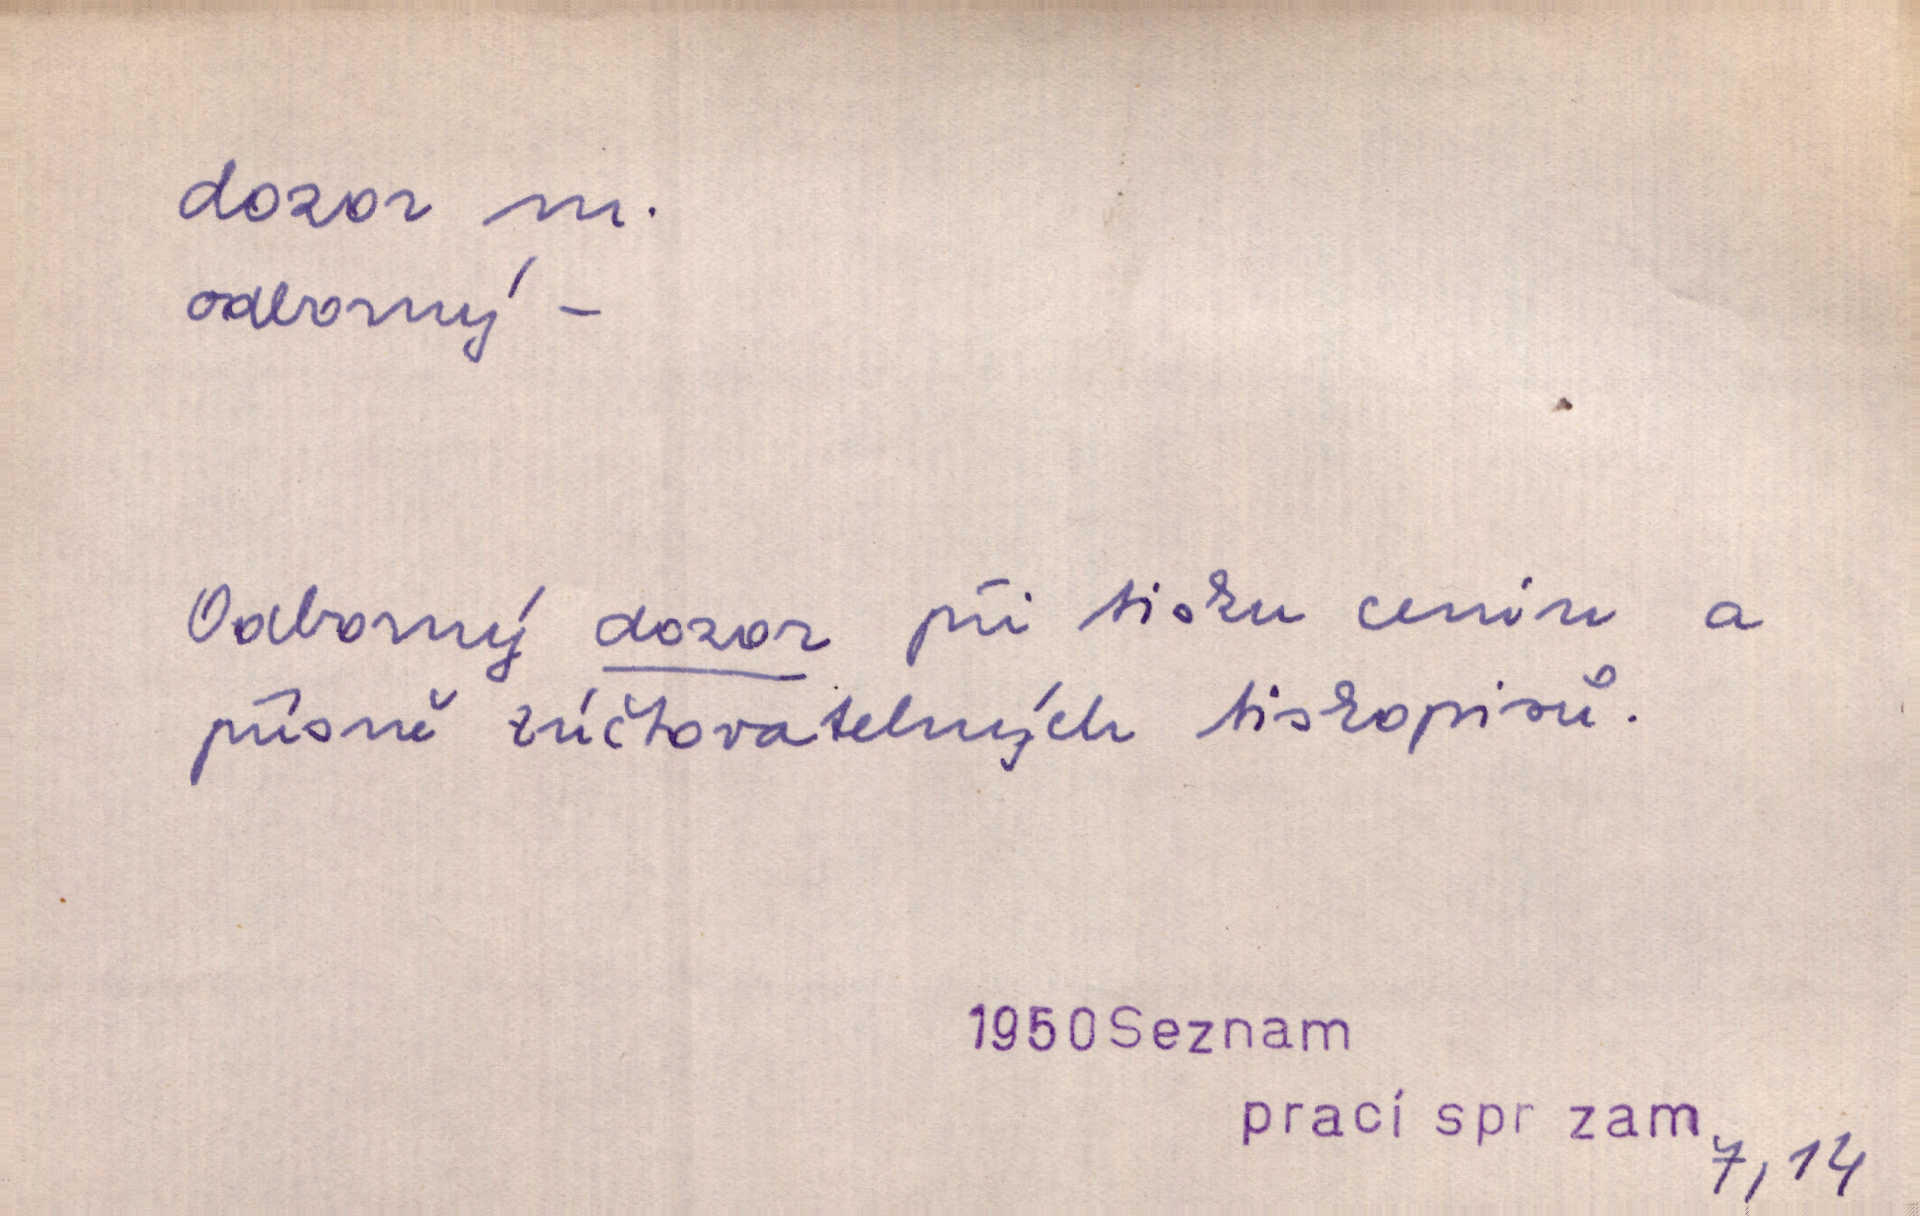 dozor m.
odborný –
Odborný dozor při tisku cenin a
přísně zúčtovatelných tiskopisů.
1950 Seznam
prací spr zam
7, 14